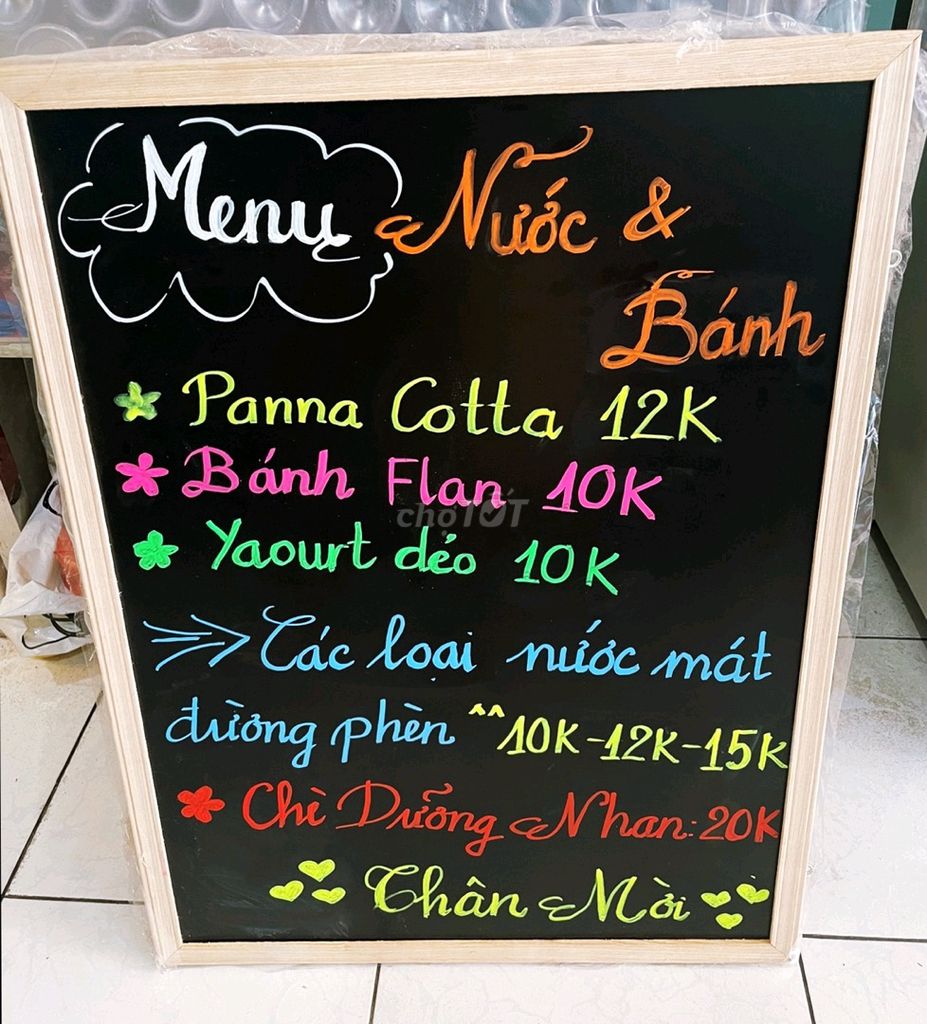 Menu Nước &
Bánh
Panna Cotta 12K
Bánh Flan 10K
chợTỐT
Yaourt dẻo 10K
Các loại nước mát
đường phèn ^^10K-12K-15K
Chè Dưỡng Nhan: 20K
Thân Mời